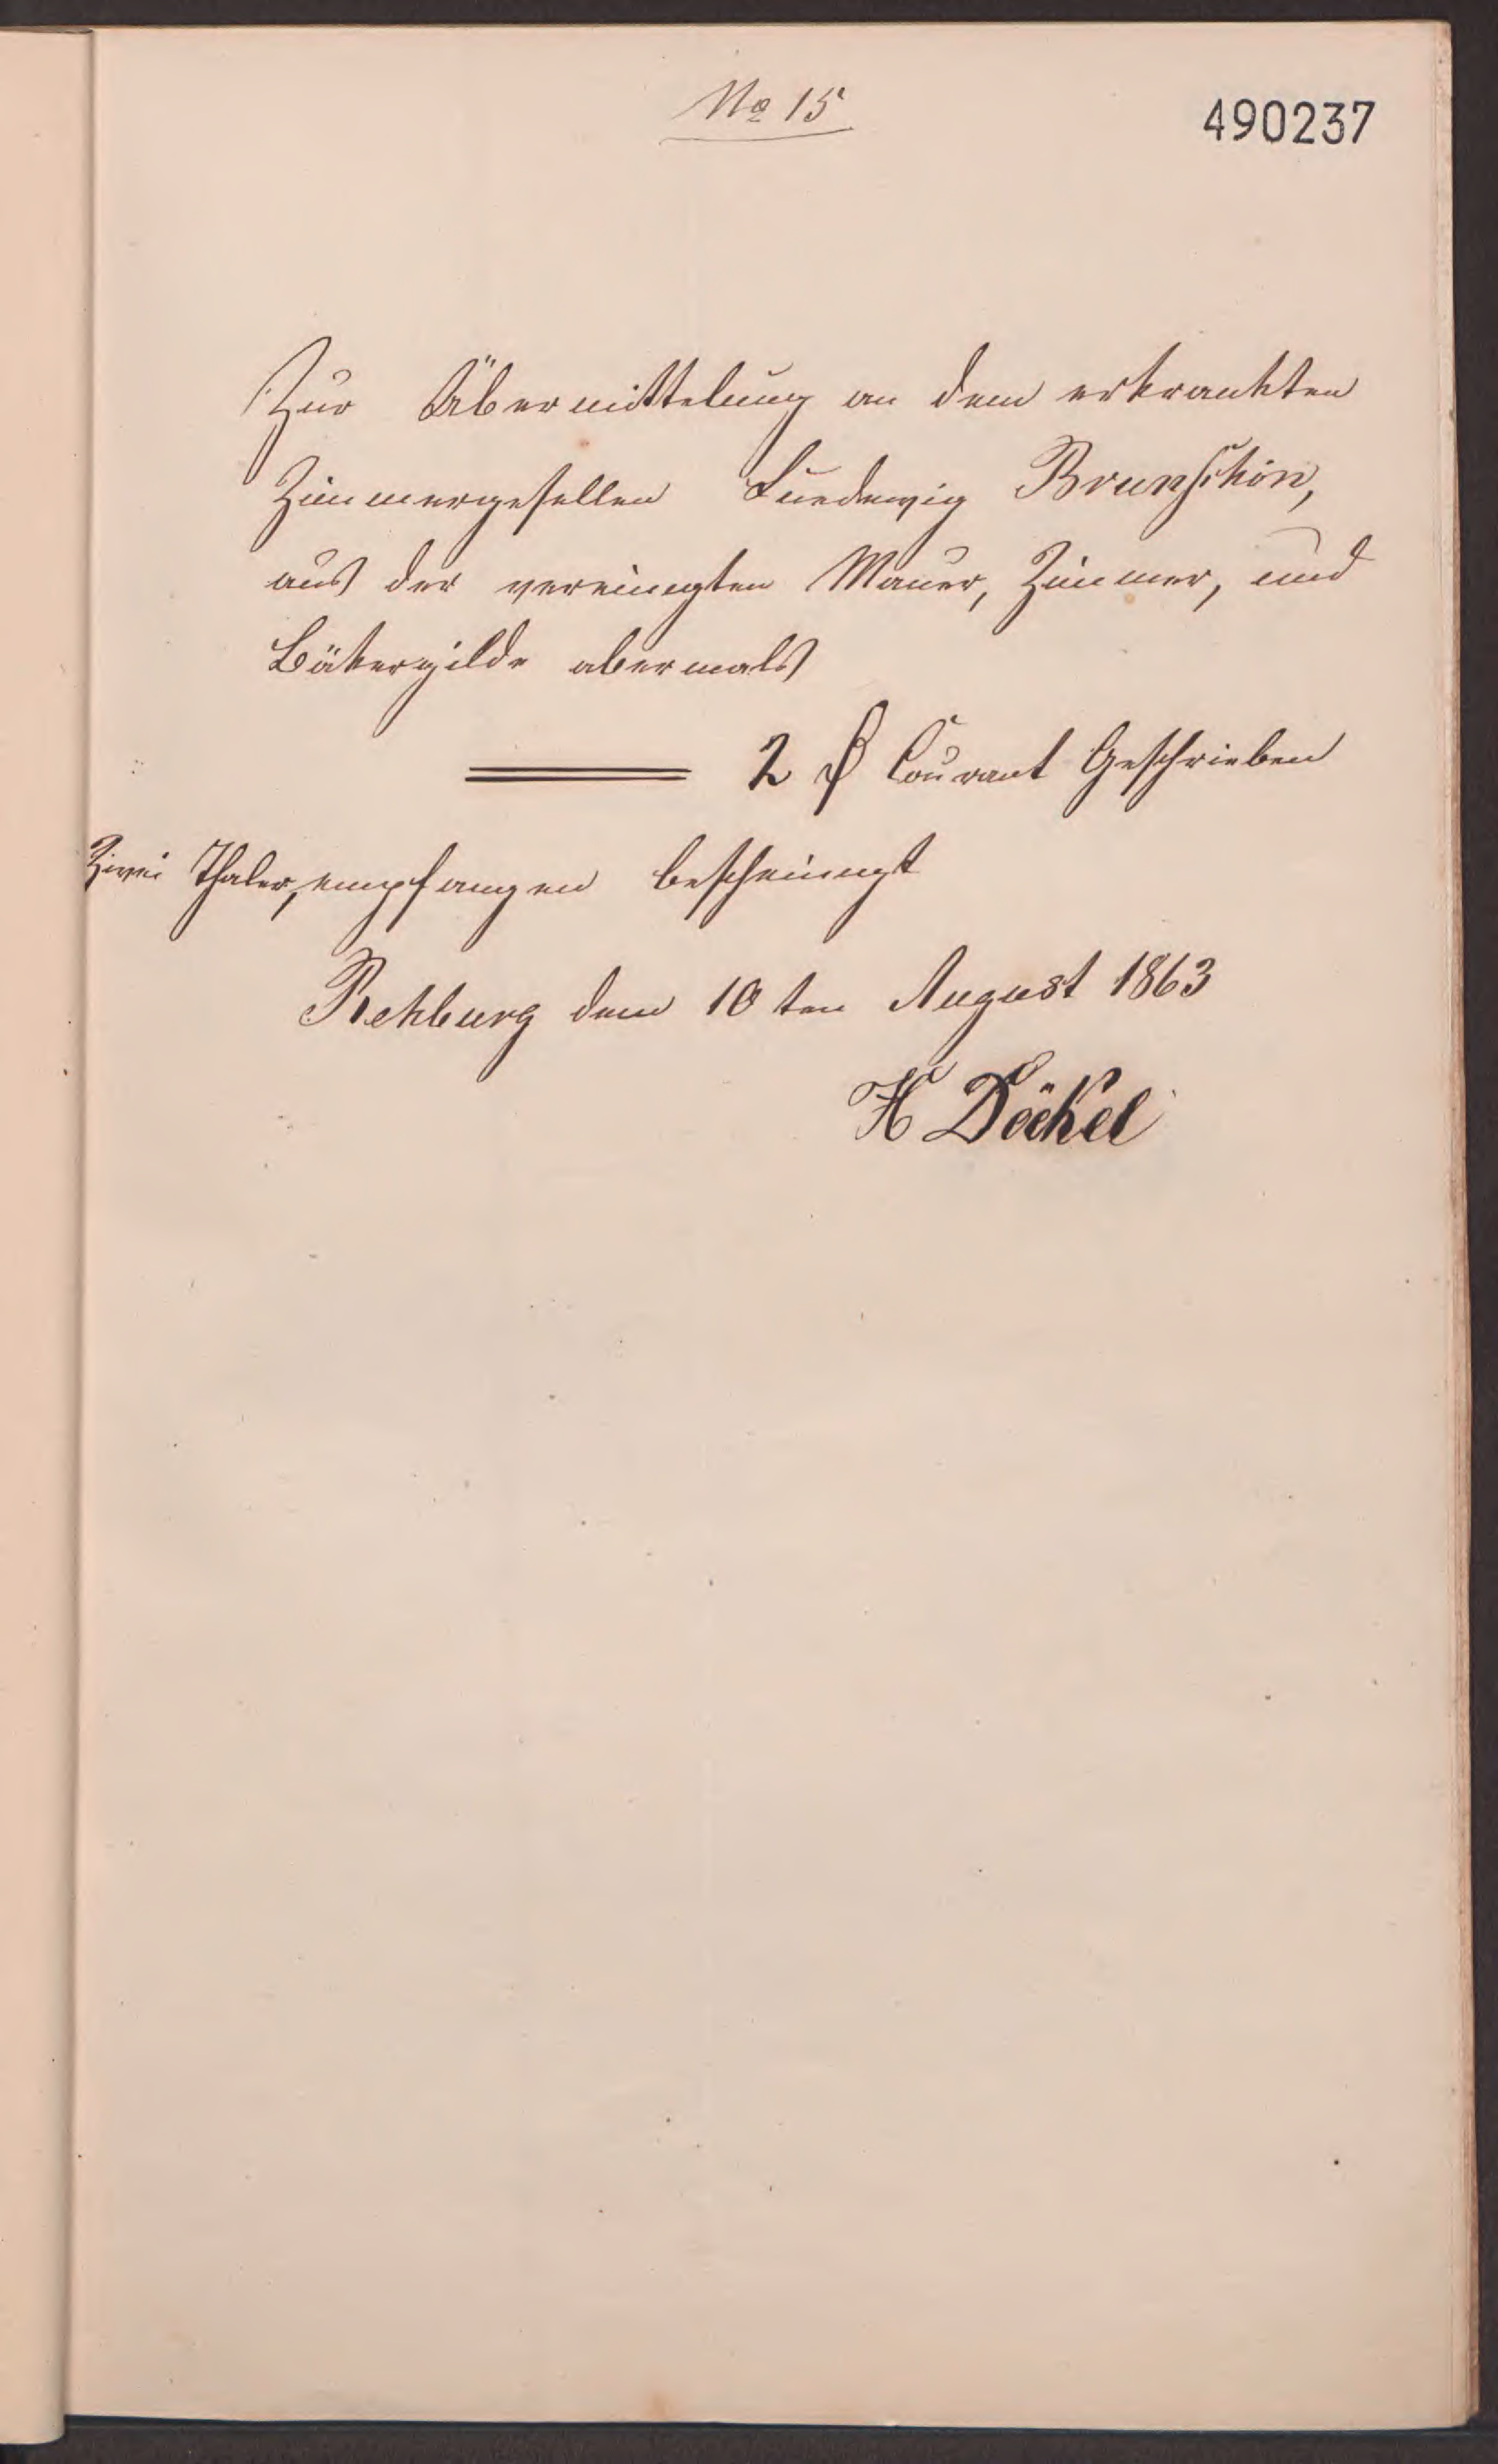 No 15
490237
Zur Übermittelung an dem erkrankten
Zimmergesellen Luedewig Brunschön,
aus der vereinigten Mauer, Zimmer, und
Bäkergilde abermals
2 ₰ Courant Geschrieben
Zwei Thaler, empfangen bescheinigt
Rehburg dem 10 ten August 1863
H Döckel